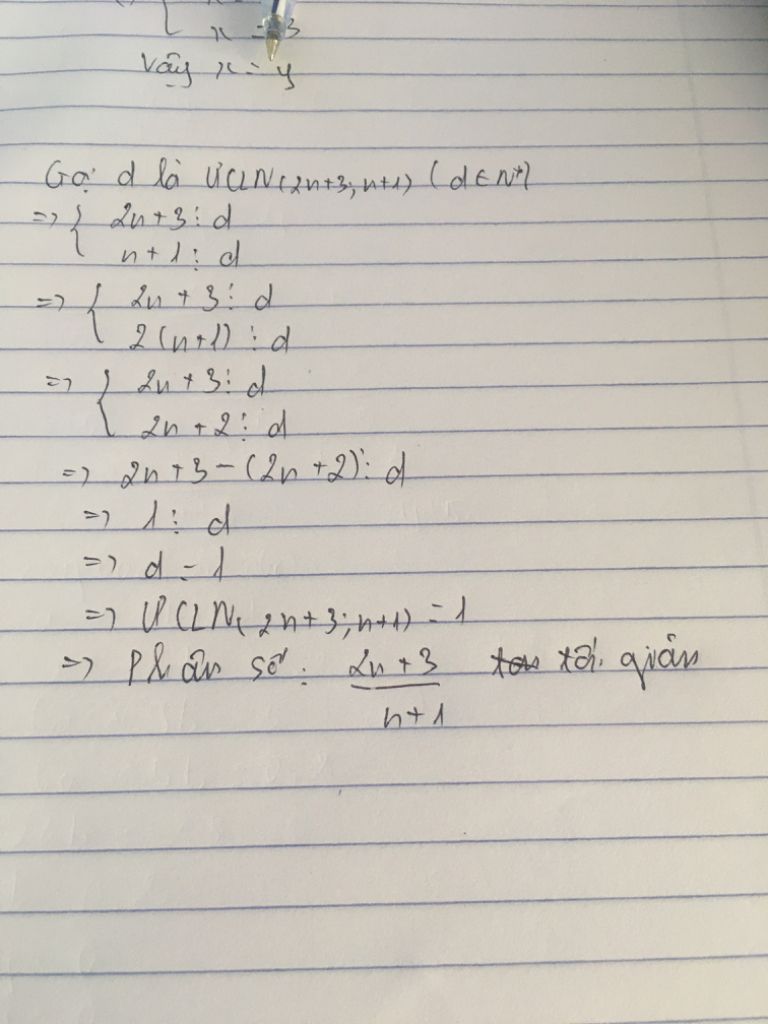 x = 3
Vậy x = y
Gọi d là ƯCLN(2n+3; n+1) (d ∈ N*)
=> { 2n+3 ⋮ d
n+1 ⋮ d
=> { 2n + 3 ⋮ d
2(n+1) ⋮ d
=> { 2n + 3 ⋮ d
2n + 2 ⋮ d
=> 2n+3-(2n+2) ⋮ d
=> 1 ⋮ d
=> d = 1
=> ƯCLN(2n+3; n+1) = 1
=> Phân số: 2n+3 tối giản
n+1